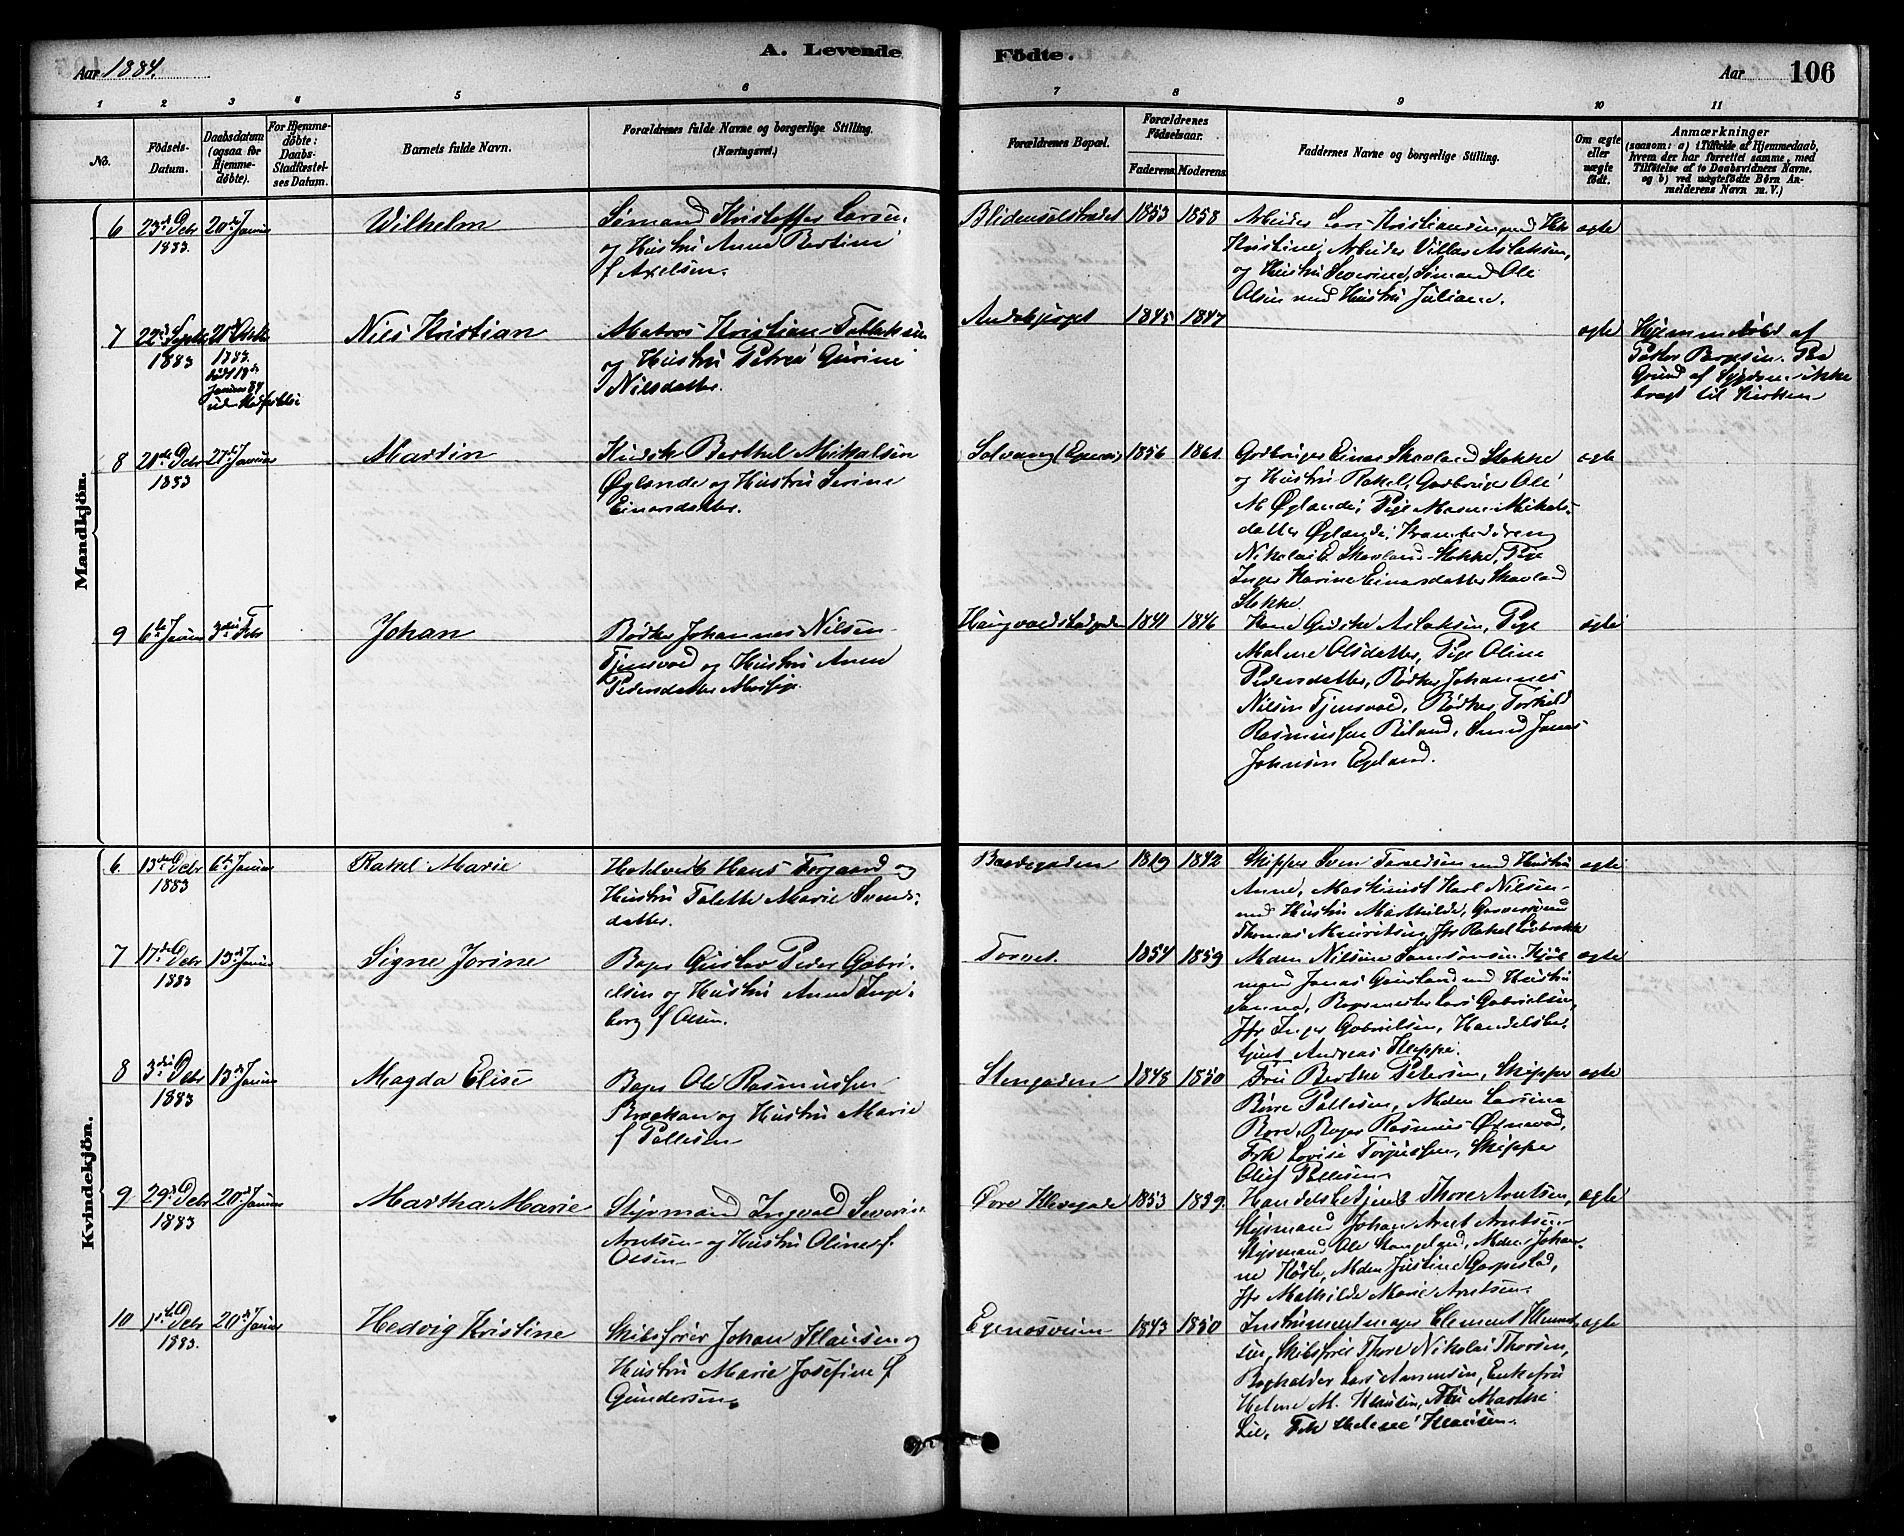 A. Levende
Födte.
Aar 1884.
Aar
106
1 2 3 4 5 6 7 8 9 10 11
No.
Födsels-
Datum.
Daabsdatum
(ogsaa for
Hjemme-
døbte).
For Hjemme-
døbte:
Daabs-
Stadfæstel-
ses Datum.
Barnets fulde Navn.
Forældrenes fulde Navne og borgerlige Stilling.
(Næringsvei.)
Forældrenes Bopæl.
Forældrenes
Födselsaar.
Faderens. Moderens.
Faddernes Navne og borgerlige Stilling.
Om ægte
eller
uægte
født.
Anmærkninger
(saasom: a) i Tilfælde af Hjemmedaab,
hvem der har forrettet samme, med
Tilføielse af to Daabsvidners Navne.
og b) ved uægtefødte Børn An-
melderens Navn m. V.)
Mandkjön.
6 23de Debr 20de Januar Wilhelm Sømand Kristoffer Larsen
1883. og Hustru Anne Bertine
f Axelsen.
1853 1858 Arbeider Lars Kristiansen med
Kristine, Arbeider Villas Aslaksen,
og Hustru Severine, Sømand Ole
Olsen med Hustru Juliane.
ægte
7 22de Septbr Nils Kristian Matros Kristian
1883 1883. og Hustru Petrea Gurine
Nilsdatter.
1845 1847
ægte Hjemmedøbt af
Pastor Børgesen. Paa
Grund af Sygdom ikke
bragt til Kirken
8 20de Debr 27de Januar Martin Kudsk Berthel Mikalsen
1883 Øglænde og Hustru Serine
Einarsdatter.
Solvang (Egersund) 1856 1861. Gadbruger Einar Skavland Stokke
og Hustru Rakel, Gadbruger Ole
M Øglænde, Pige Maren Mikals-
datter Øglænde,
Nikolai E. Skavland-Stokke, Pige
Inger Karine Einarsdatter Skavland
Stokke.
ægte
9 6te Januar 3die Febr Johan Bødker Johannes Nilsen
Tjensvold og Hustru Anne
Pedersdatter
1841 1846 Kone Aslaksen, Pige
Malene Olsdatter, Pige Oline
Pedersdatter, Bødker Johannes
Nilsen Tjensvold, Bødker Torkild
Rasmussen Birland, Smed Jonas
Johnsen Egeland.
ægte
Kvindekjön.
6 13de Debr 6te Januar Rakel Marie Hans og
1883 Hustru Talette Marie Svends-
datter.
1842 Skipper Sven med Hustru
Anne, Maskinist Karl Nilsen
med Hustru Marthilde,
Thomas Mauritsen, Jfr Rakel
ægte
7 17de Debr 13de Januar Signe Jorine Bager Gustav Peder Gabri-
1883 elsen og Hustru Anne Inge-
borg f Olsen.
Torvet. 1854 1859 Mdm Nilsine Samsonsen, Kjøb-
mand Jonas med Hustru
Sanna, Bagermester Lars Gabrielsen,
Jfr Inger Gabrielsen, Handelsbe-
tjent Andreas Kleppe.
ægte
8 3die Debr 13de Januar Magda Elise Bager Ole Rasmussen
1883 og Hustru Marie
f Pallesen
Stengaden 1848 1850 Fru Berthe Petersen, Skipper
Børre Pallesen, Mdm Lassine
Bore, Bager Rasmus Øgnevad,
Frk Lovise Torjussen, Skipper
Oluf Pallesen
ægte
9 29de Debr 20de Januar Martha Marie Styrmand Ingvald Severin
1883 Arntsen og Hustru Oline f.
Olsen
Øvre Klevegade 1853 1859. Handelsbetjent Thore Arntsen,
Styrmand Johan Arnt Arntsen
Styrmand Ole Stangeland, Mdm Johan-
ne Mdm Justine Garpestad,
Jfr Mathilde Marie Arntsen.
ægte
10 1ste Debr 20de Januar Hedvig Kristine Skibsfører Johan Klausen og
1883. Hustru Marie Josefine f
Gundersen
Egenæsveien 1843 1850 Instrumentmager Clement
sen, Skibsfører Thore Nikolai Thorsen,
Bogholder Lars Amundsen, Enkefru
Helene M. Klausen, Fru Marthe
Lie, Frk Helene Klausen.
ægte